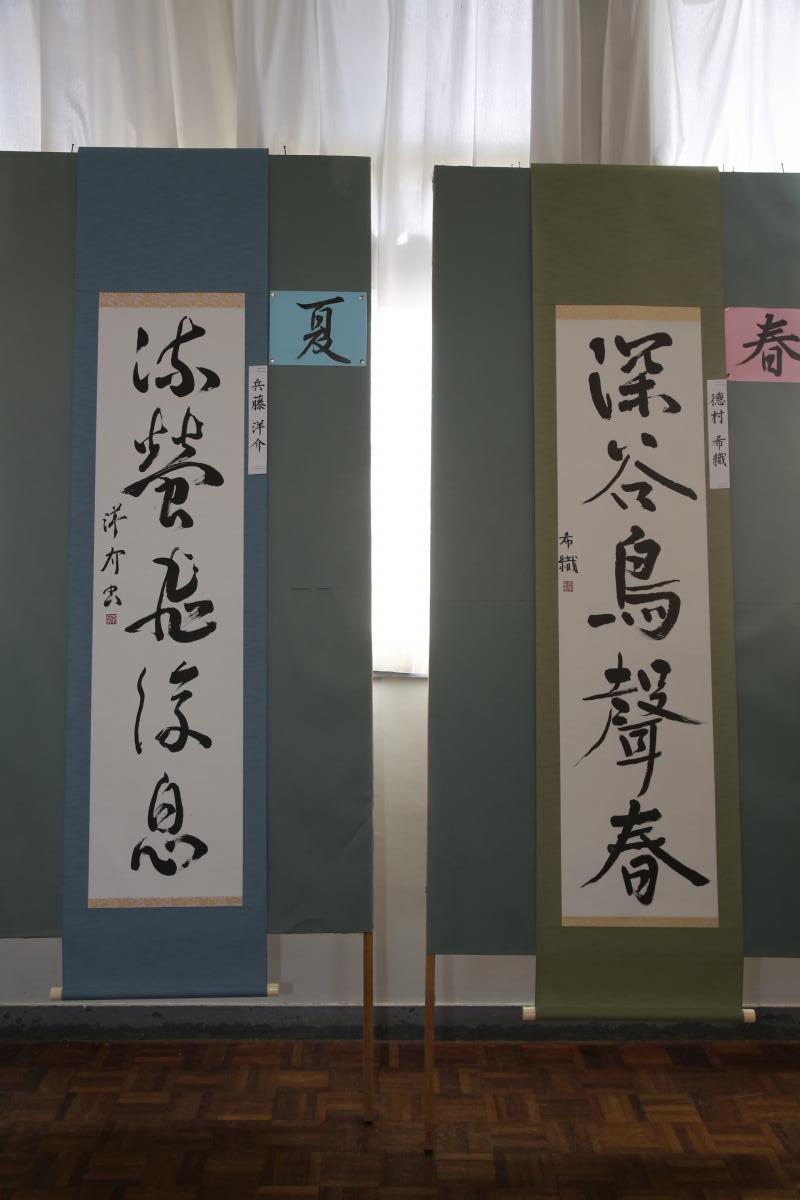 春
徳村 希織
深谷鳥聲春
希織
夏
兵藤 洋介
流螢飛復息
洋介書